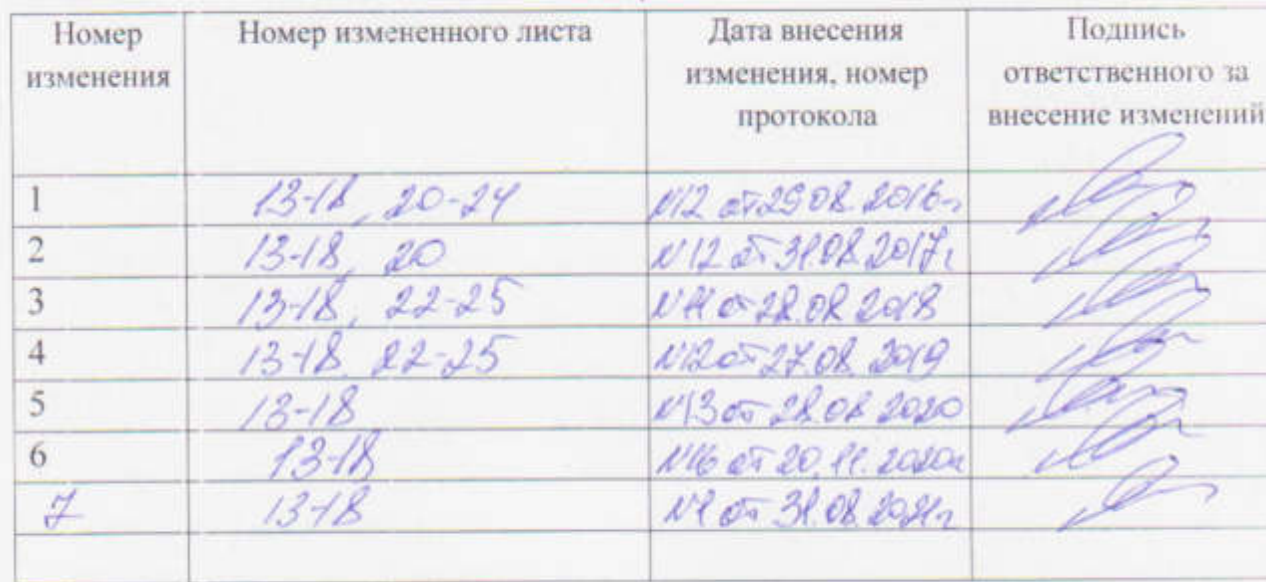 Номер изменения Номер измененного листа Дата внесения изменения, номер протокола Подпись ответственного за внесение изменений
1 13-18, 20-24 №12 от 29.08.2016г
2 13-18, 20 №12 от 31.08.2017г
3 13-18, 22-25 №11 от 28.08.2018
4 13-18, 22-25 №12 от 27.08.2019
5 13-18 №13 от 28.08.2020
6 13-18 №16 от 20.11.2020г
7 13-18 №1 от 31.08.2021г